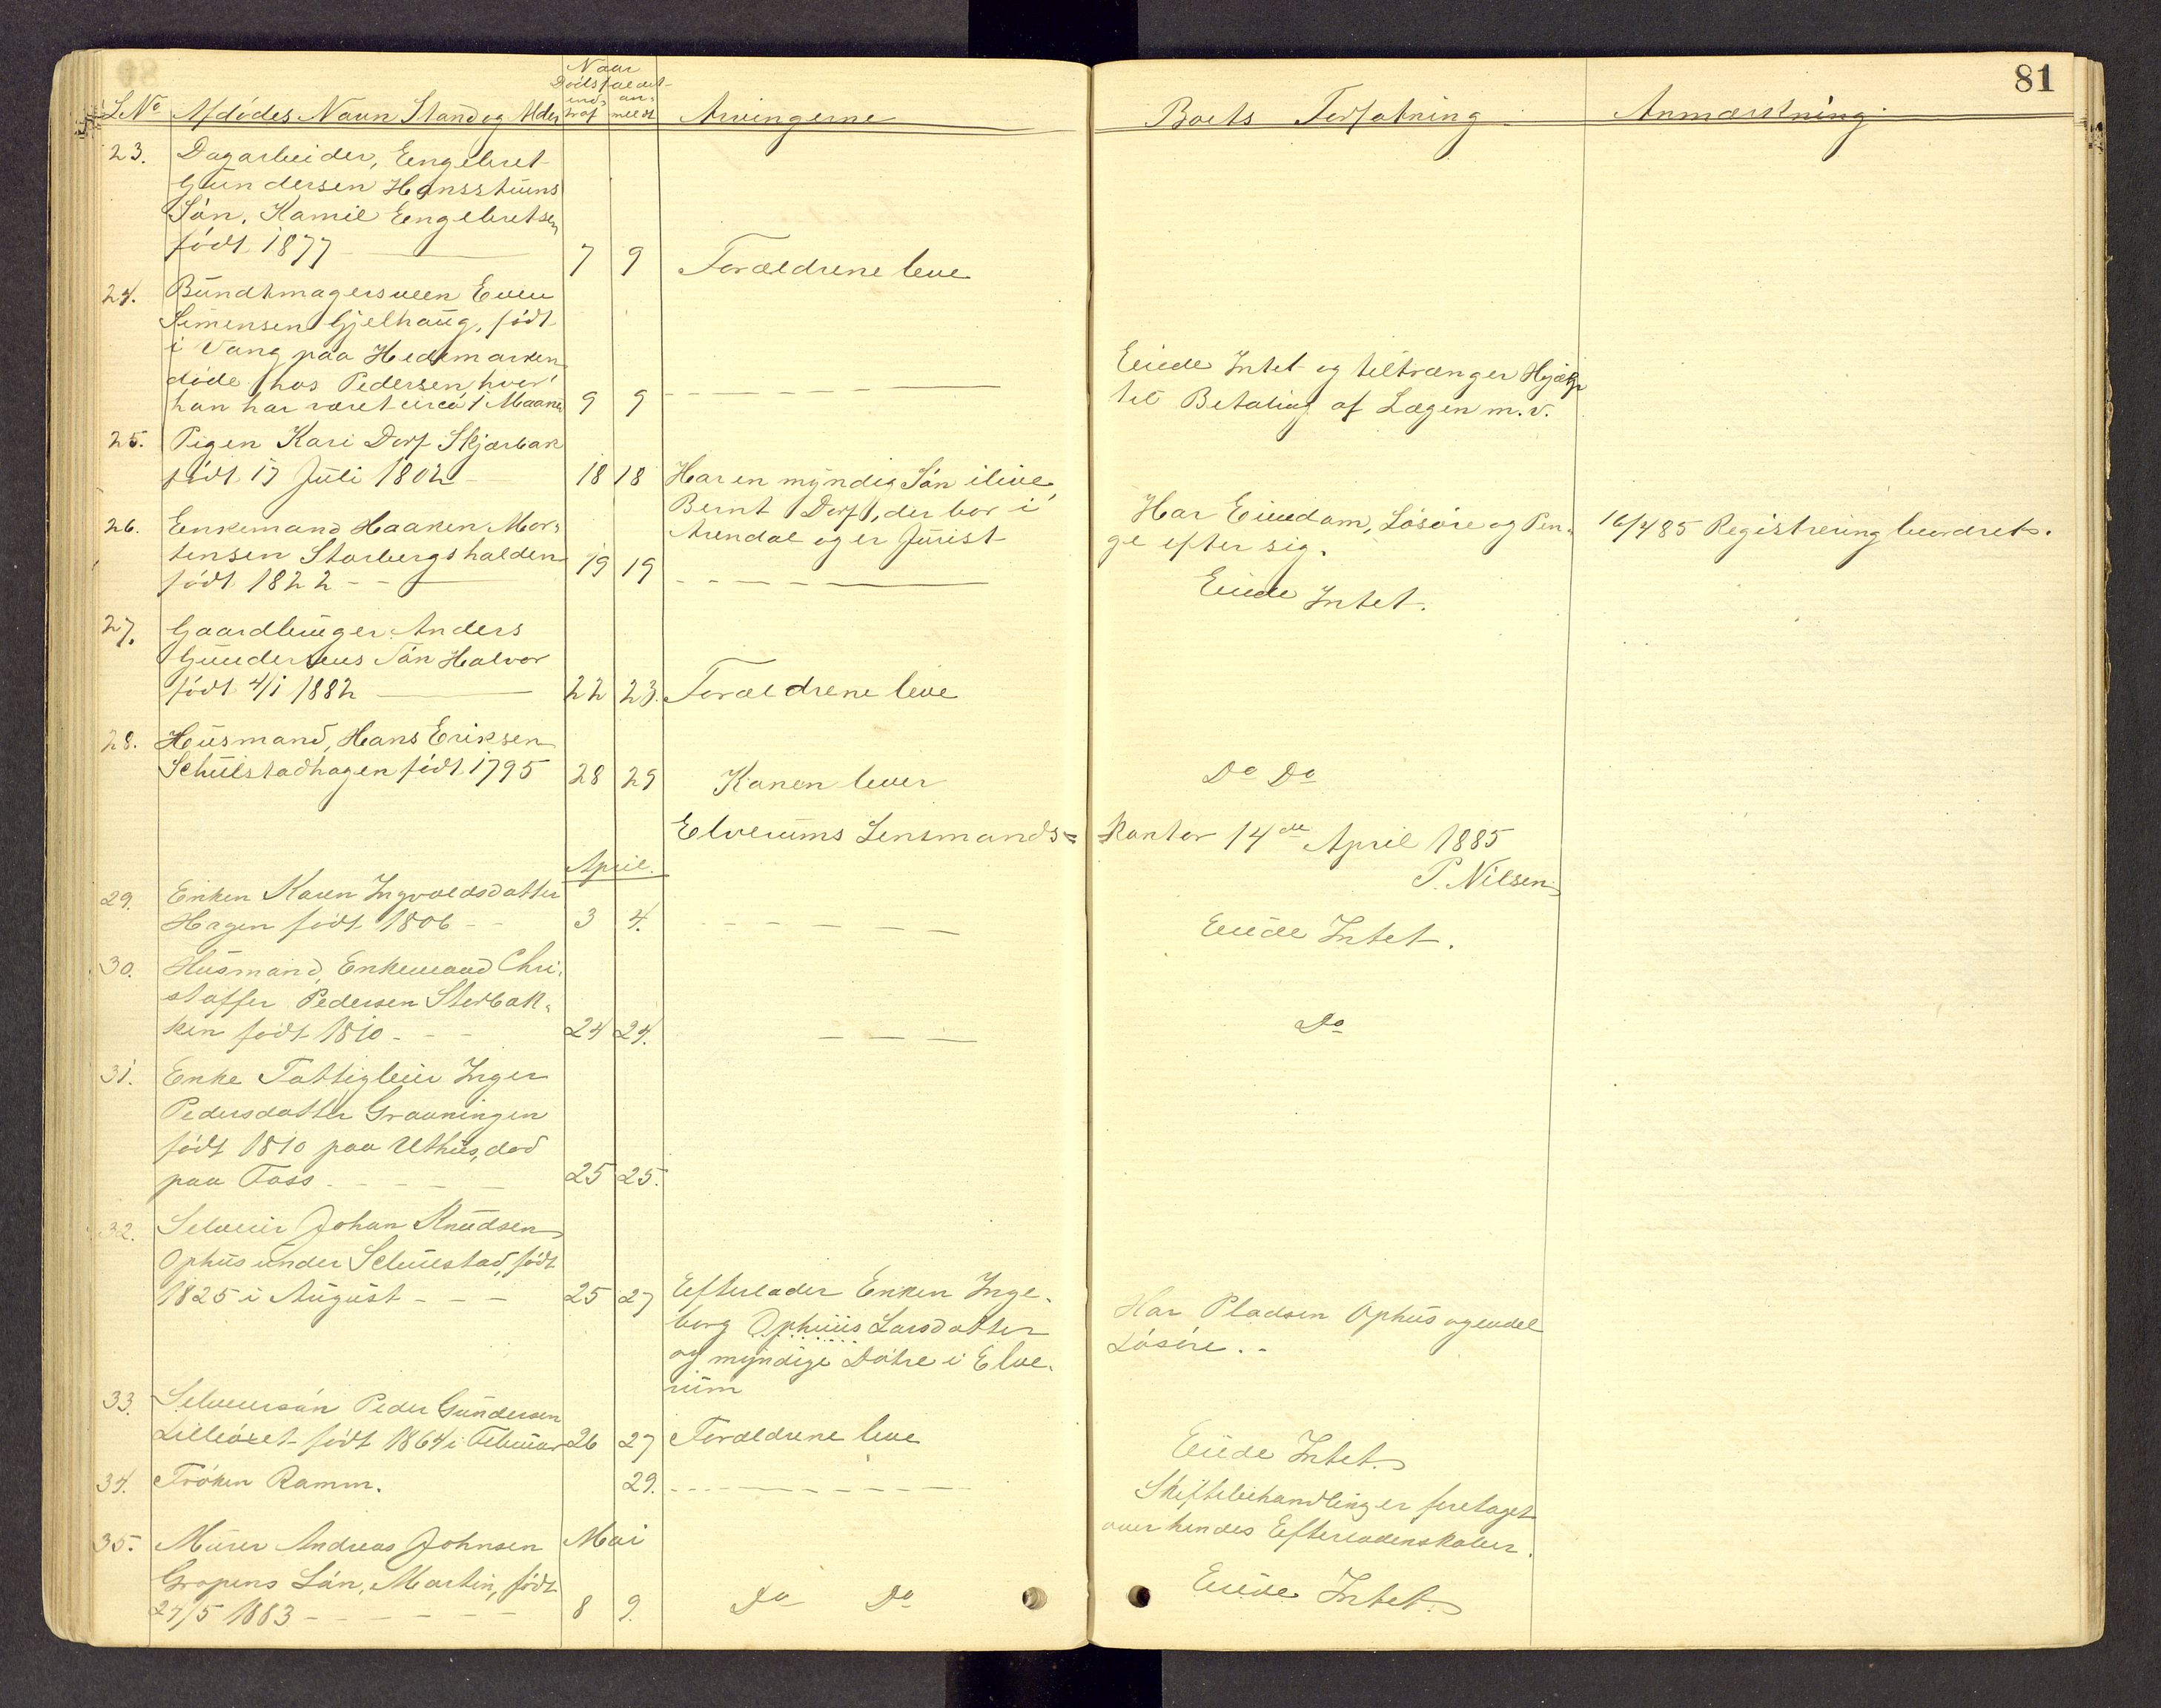 81
Naar
Dödsfaldet
L. No Afdödes Navn Stand og Alder indtraf anmeldt Arvingerne Boets Forfatning Anmærkning
23. Dagarbeider, Engebret
Gundersen Hansstuens
Sön, Kamil Engebretsen
född 1877 7 9 Forældrene leve
24. Bundtmagersveen Even
Simensen Gjelhaug, född
i Vang paa Hedemarken
döde hos Pedersen hvor
han har været circa 1 Maaned 9 9
Eiede Intet og tiltrænger Hjælp
til Betaling af Lægen m.v.
25. Pigen Kari Dorf Skjærbæk
född 17 Juli 1802 18 18 Har en myndig Sön ilive,
Bernt Dorf, der bor i
Arendal og er Jurist
Har Eiendom, Lösöre og Pen-
ge efter sig.
16/4 85 Registrering beordret.
26. Enkemand Haaken Mor-
tensen Storbergshalden
född 1822 19 19 Eiede Intet.
27. Gaardbruger Anders
Gundersens Sön Halvor
född 4/1 1882 22 23. Forældrene leve
28. Husmand, Hans Eriksen
Schulstadhagen född 1795 28 29 Konen lever Do Do
Elverums Lensmands= kontor 14de April 1885
P. Nilsen
April.
29. Enken Karen Ingvoldsdatter
Hagen född 1806 3 4. Eiede Intet.
30. Husmand, Enkemand Chri-
stoffer Pedersen Sterbak-
ken född 1810 24 24. Do
31. Enke Fattiglem Inger
Pedersdatter Gravningen
född 1810 paa Uthus, död
paa Foss 25 25.
32. Selveier Johan Knudsen
Ophus under Schulstad, född
1825 i August 25 27 Efterlader Enken Inge-
borg Ophuus Larsdatter
og myndige Dötre i Elve-
rum
Har Pladsen Ophus og endel
Lösöre.
33. Selveiersön Peder Gundersen
Lilleöset född 1864 i Februar 26 27 Forældrene leve Eiede Intet.
34. Fröken Ramm. 29. Skiftebehandling er foretaget
over hendes Efterladenskaber.
35. Murer Andreas Johnsen Mai
Gropens Sön, Martin, född
24/5 1883 8 9. Do Do Eiede Intet.